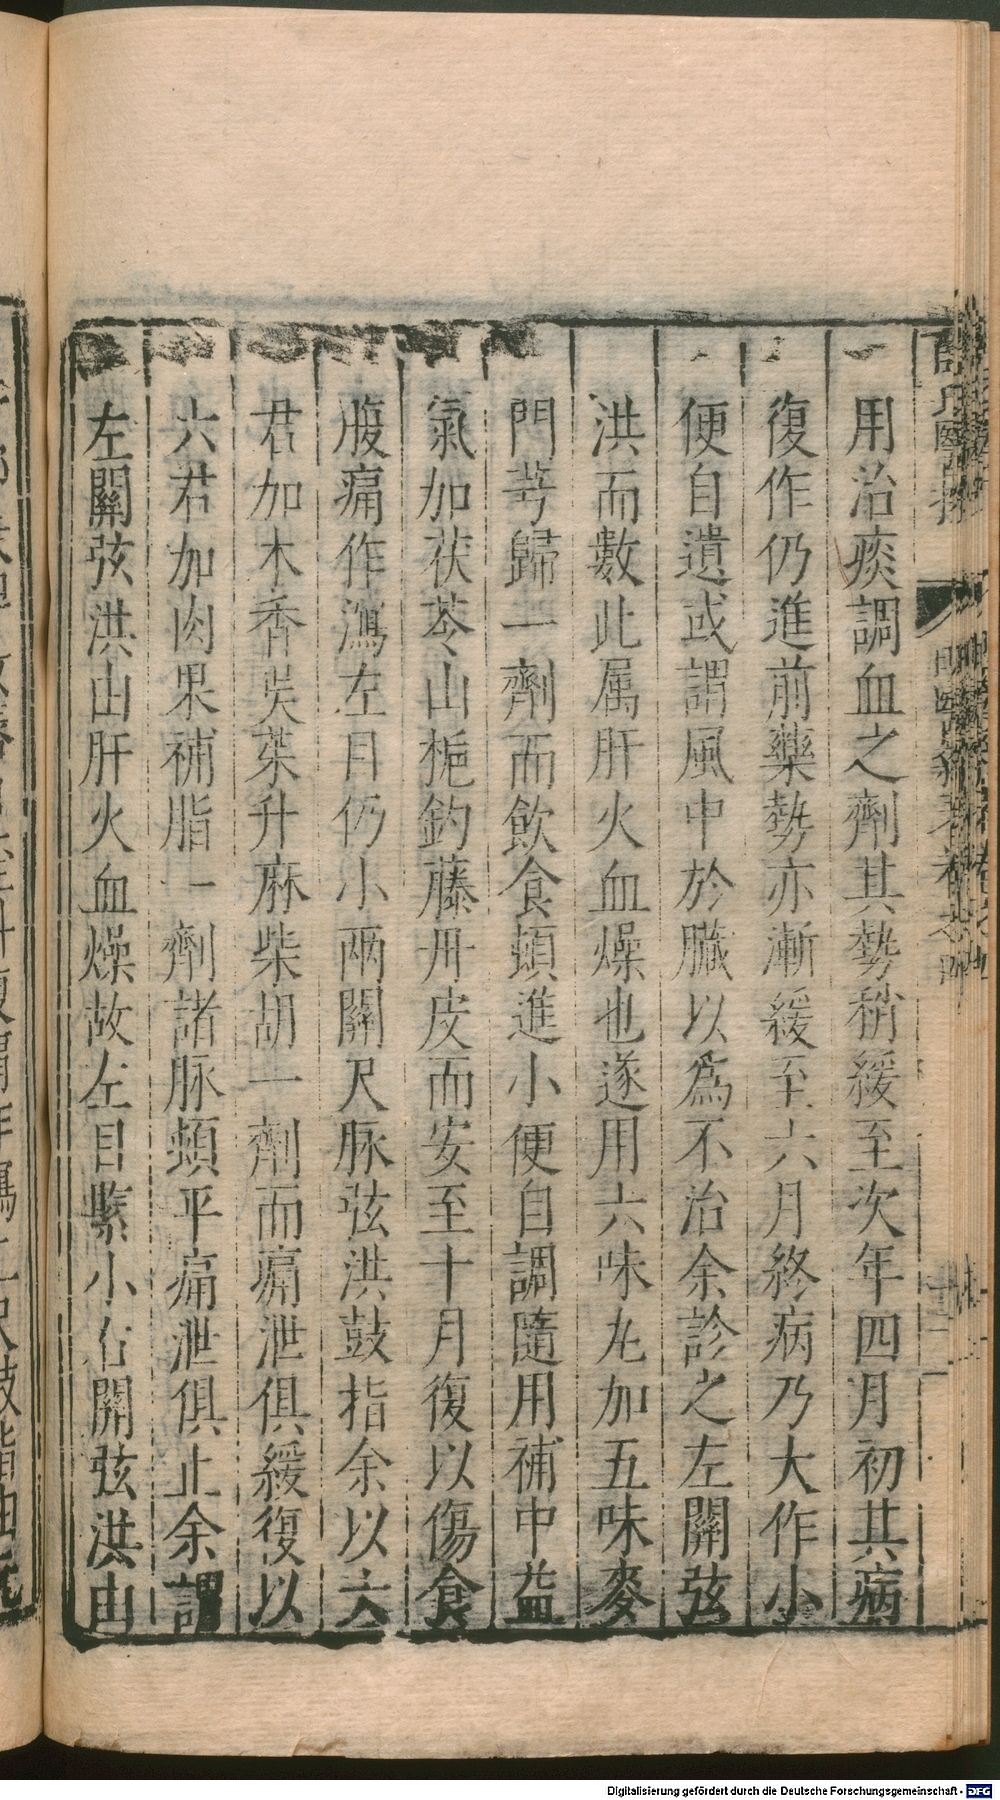 用治痰調血之劑其勢稍緩至次年四月初其病
復作仍進前藥勢亦漸緩至六月終病乃大作小
便自遺或謂風中於臟以爲不治余診之左關弦
洪而數此属肝火血燥也遂用六味丸加五味麥
門芎歸一劑而飲食頓進小便自調隨用補中益
氣加茯苓山梔釣藤丹皮而安至十月復以傷食
腹痛作瀉左目仍小兩關尺脉弦洪鼓指余以六
君加木香吳茱升麻柴胡一劑而痛泄俱緩復以
六君加肉果補脂一劑諸脉頓平痛泄俱止余謂
左關弦洪由肝火血燥故左目緊小右關弦洪由
Digitalisierung gefördert durch die Deutsche Forschungsgemeinschaft - DFG